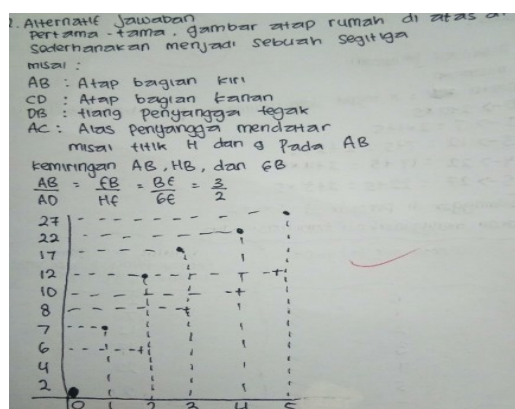 2. Alternatif Jawaban
Pertama-tama, gambar atap rumah di atas di
Sederhanakan menjadi sebuah segitiga
misal :
AB : Atap bagian kiri
CD : Atap bagian kanan
DB : tiang penyangga tegak
AC : Alas penyangga mendatar
misal titik H dan g Pada AB
kemiringan AB, HB, dan GB
AB/AD = EB/HE = BE/GE = 3/2
27
22
17
12
10
8
7
6
4
2
0 1 2 3 4 5